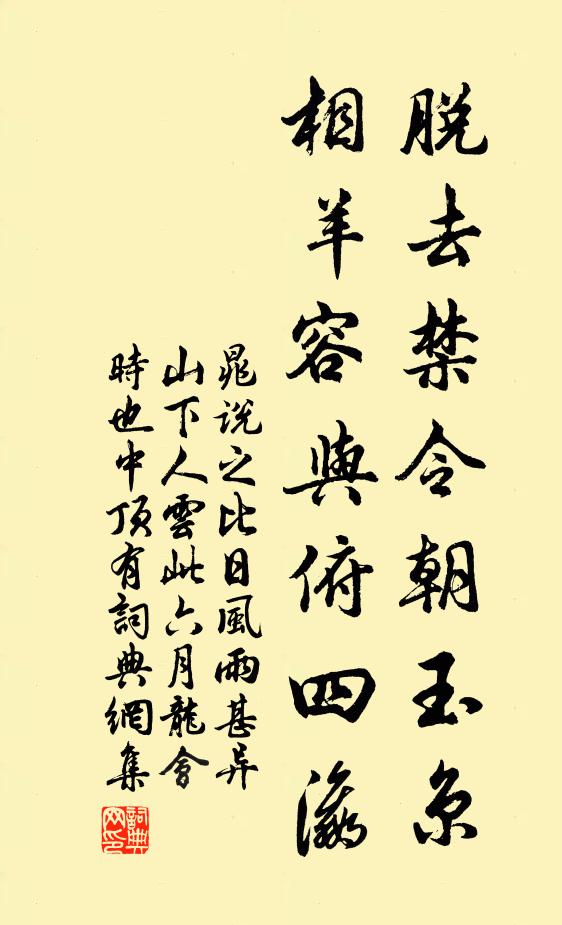 脱去禁令朝玉京
相羊容與俯四瀛
晁说之比日風雨甚异
山下人雲此六月龍會
時也中頂有詞典網集
詞典网印